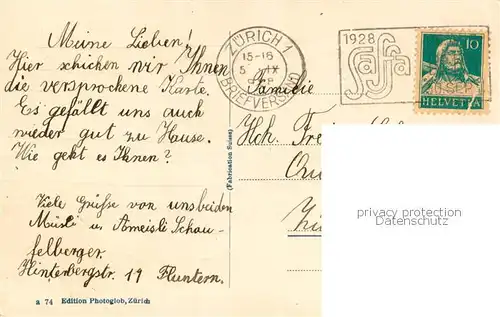 Meine Lieben!
Hier schicken wir Ihnen
die versprochene Karte.
Es gefällt uns auch
wieder gut zu Hause.
Wie geht es Ihnen?
Viele Grüsse von uns beiden
Müsli u. Ameisli Schau-
felberger.
Hinterbergstr. 19 Fluntern.
a 74 Edition Photoglob, Zürich
(Fabrication Suisse)
ZÜRICH 1
15-16
5 IX
(BRIEFVERSAND)
1928
Saffa
10
HELVETIA
Familie
Hch.
privacy protection
watermark